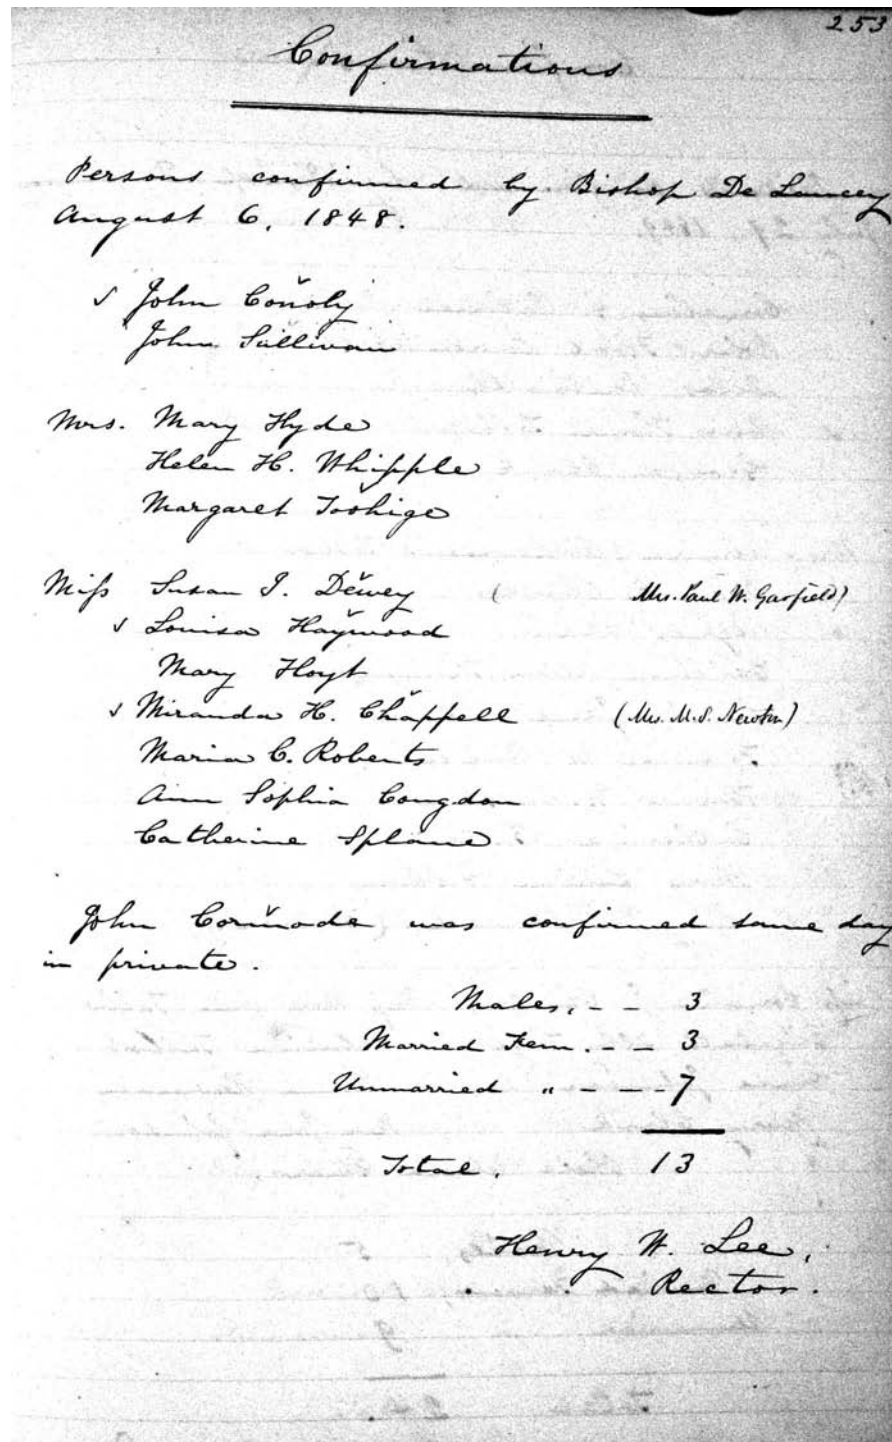 253
Confirmations
Persons confirmed by Bishop De Lancey
August 6, 1848.
✓ John Conoly
John Sullivan
Mrs. Mary Hyde
Helen H. Whipple
Margaret Toohige
Miss Susan I. Dewey ( Mrs. Paul W. Garfield)
✓ Louisa Haywood
Mary Hoyt
✓ Miranda H. Chappell (Mrs. M.S. Newton)
Maria C. Roberts
Ann Sophia Congdon
Catherine Splane
John was confirmed same day
in private.
Males, - - 3
Married Fem. - - 3
Unmarried " - - - 7
Total, 13
Henry W. Lee,
Rector.